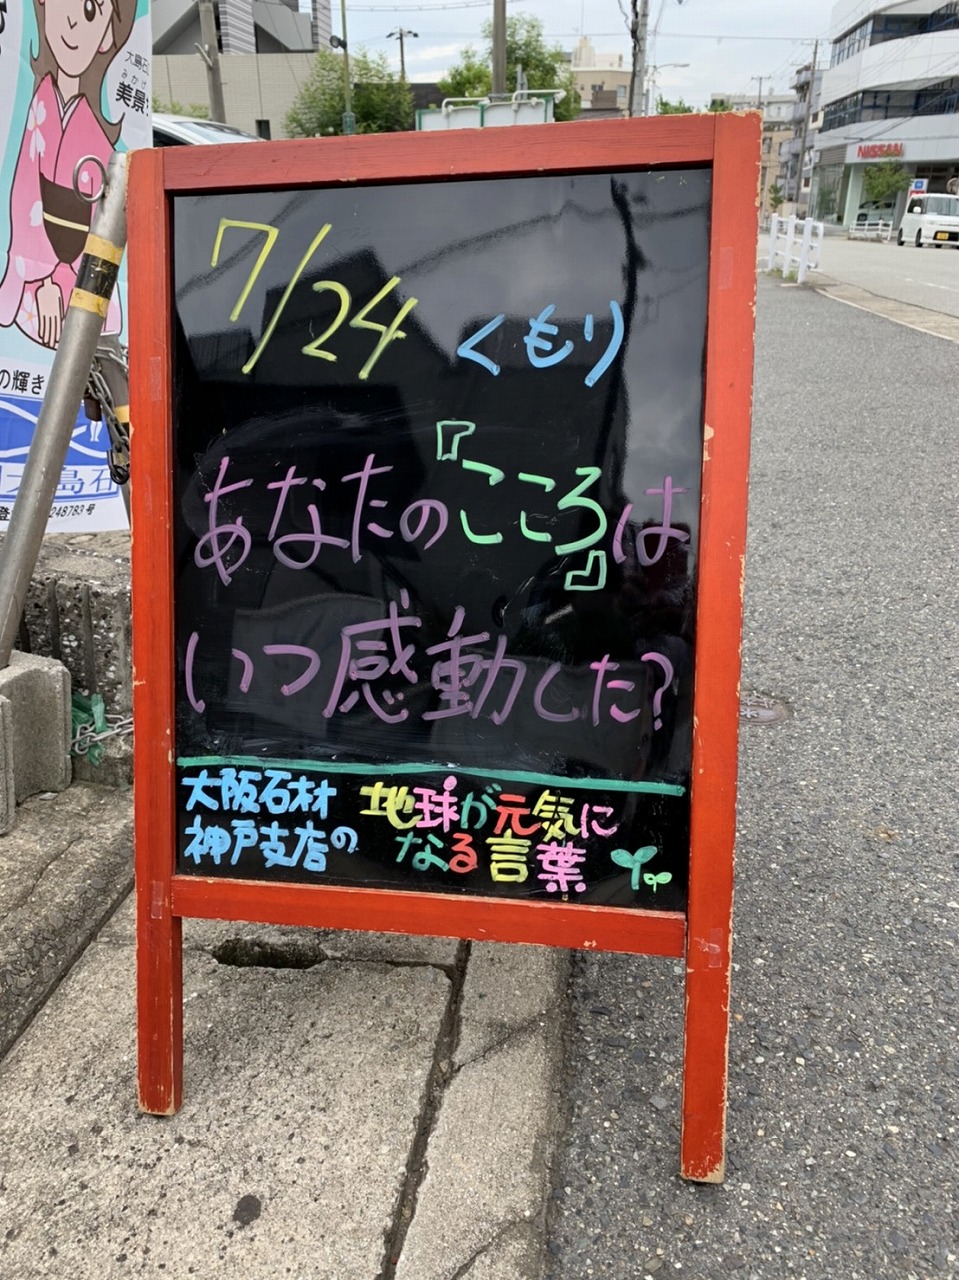 7/24 くもり
あなたの『こころ』は
いつ感動した?
大阪石材
神戸支店の
地球が元気に
なる言葉
大島石
みかげ
美景
の輝き
大島石
248783号
NISSAN